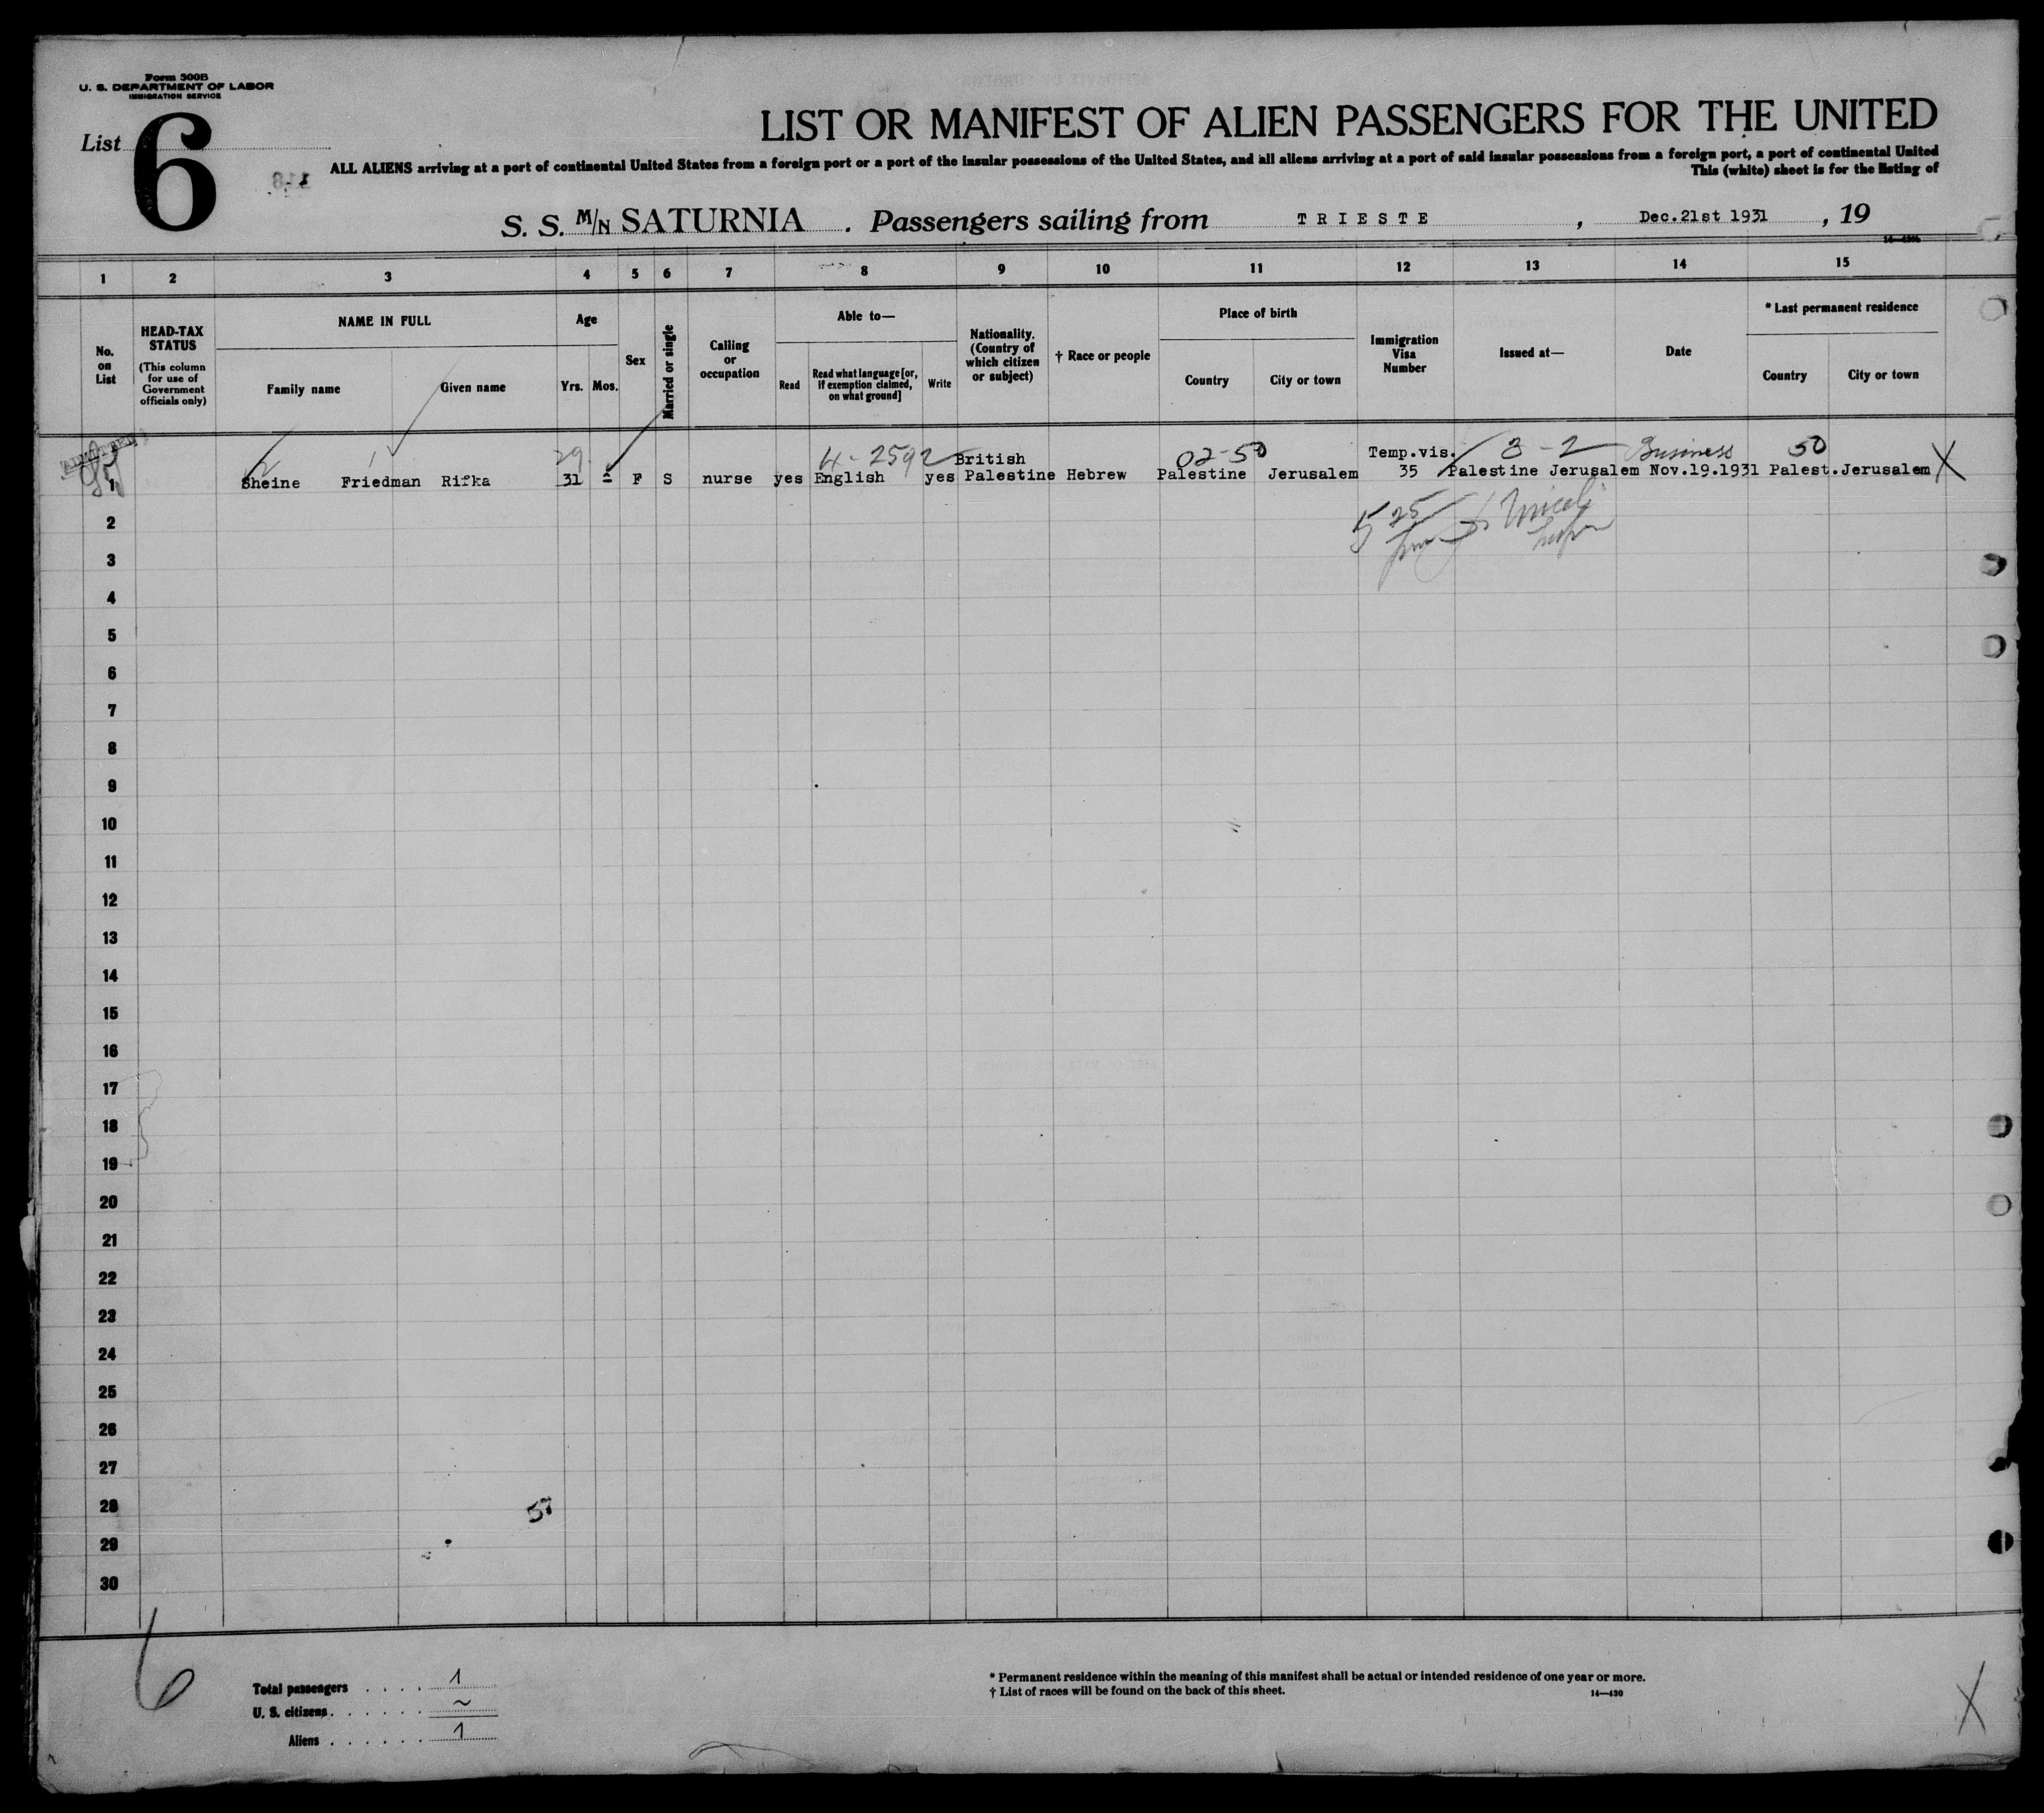 Form 500B
U. S. DEPARTMENT OF LABOR
IMMIGRATION SERVICE
List 6
LIST OR MANIFEST OF ALIEN PASSENGERS FOR THE UNITED
ALL ALIENS arriving at a port of continental United States from a foreign port or a port of the insular possessions of the United States, and all aliens arriving at a port of said insular possessions from a foreign port, a port of continental United
This (white) sheet is for the listing of
S. S. M/N SATURNIA . Passengers sailing from TRIESTE , Dec.21st 1931 , 19
1 2 3 4 5 6 7 8 9 10 11 12 13 14 15
No. on List
HEAD-TAX STATUS
(This column for use of Government officials only)
NAME IN FULL
Family name Given name
Age
Yrs. Mos.
Sex
Married or single
Calling or occupation
Able to—
Read
Read what language [or, if exemption claimed, on what ground]
Write
Nationality. (Country of which citizen or subject)
† Race or people
Place of birth
Country City or town
Immigration Visa Number
Issued at—
Date
* Last permanent residence
Country City or town
ADMITTED
29 4-2592 British 02-50 Temp.vis. 3-2 Business 50
1 Sheine Friedman Rifka 31 - F S nurse yes English yes Palestine Hebrew Palestine Jerusalem 35 Palestine Jerusalem Nov.19.1931 Palest. Jerusalem X
5 25
2
3
4
5
6
7
8
9
10
11
12
13
14
15
16
17
18
19
20
21
22
23
24
25
26
27
28
29
30
57
6
Total passengers . . . . 1
U. S. citizens . . . . . . ~
Aliens . . . . . . 1
* Permanent residence within the meaning of this manifest shall be actual or intended residence of one year or more.
† List of races will be found on the back of this sheet.
14—430
X